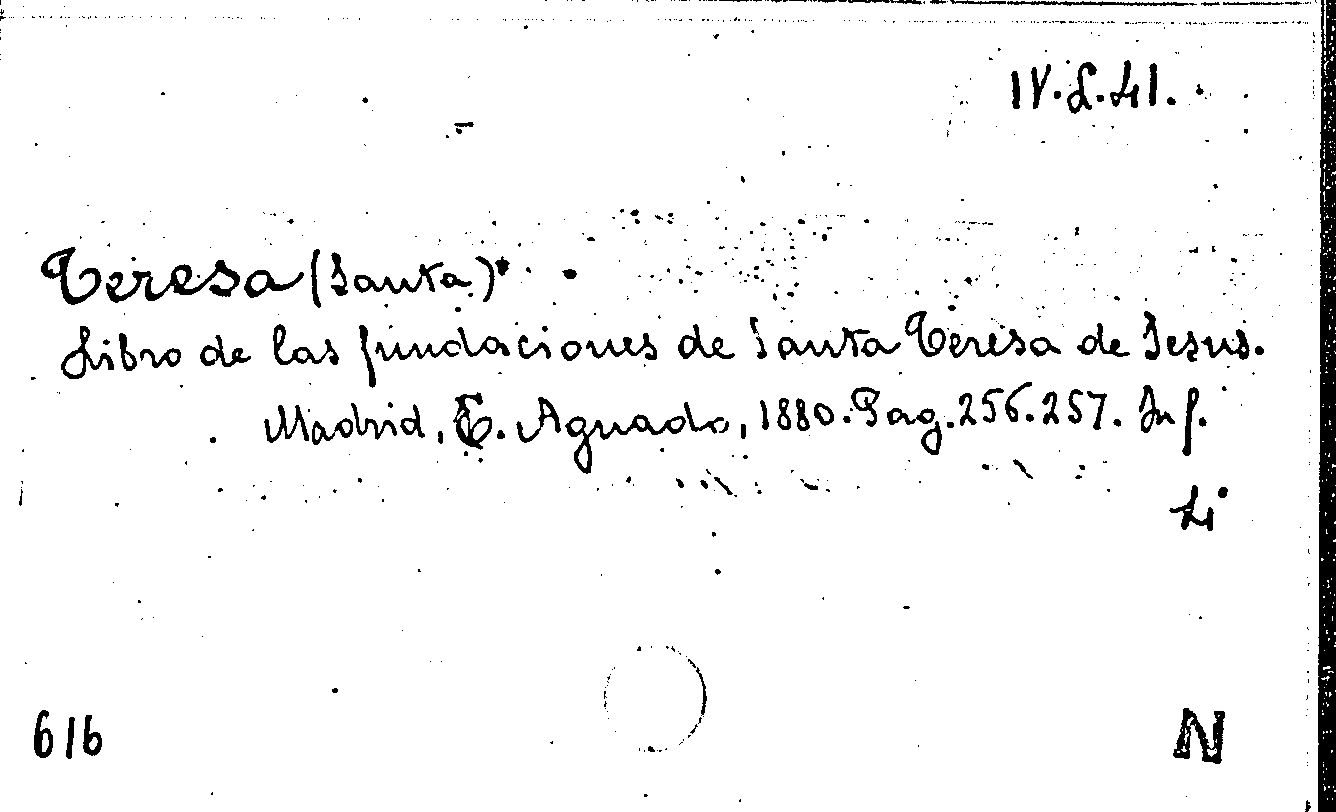 IV.L.41.
Teresa (Santa)
Libro de las fundaciones de Santa Teresa de Jesus.
Madrid, T. Aguado, 1880. Pag. 256.257. In f.
Li
616
N